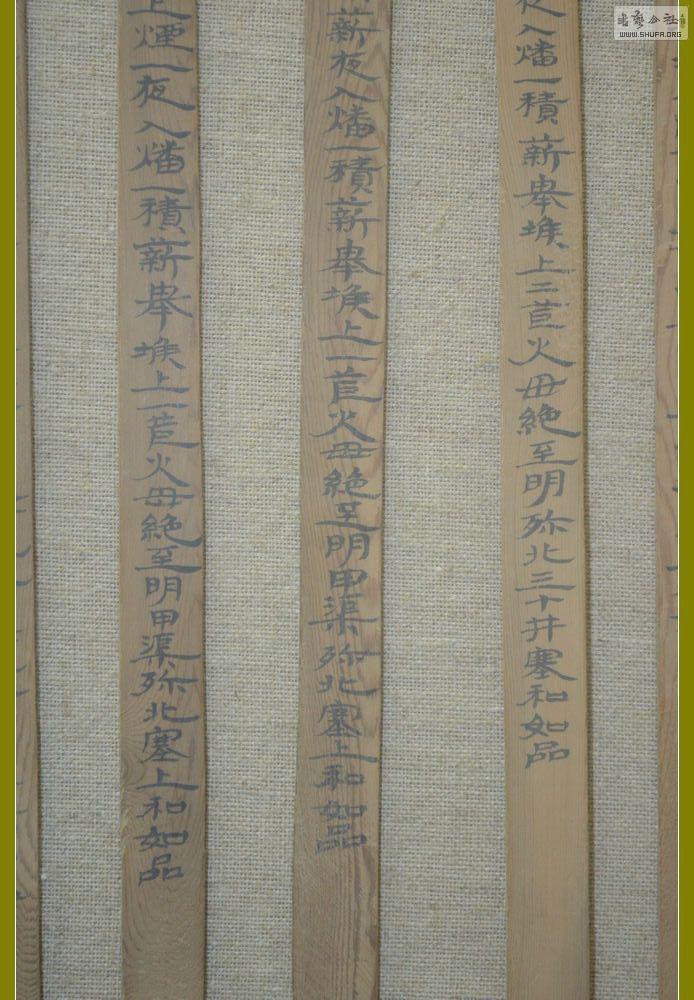 夜入燔一積薪舉堠上二苣火毋絶至明殄北三十井塞和如品
薪夜入燔一積薪舉堠上一苣火毋絶至明甲渠殄北塞上和如品
上煙一夜入燔一積薪舉堠上一苣火毋絶至明甲渠殄北塞上和如品
書藝公社
WWW.SHUFA.ORG